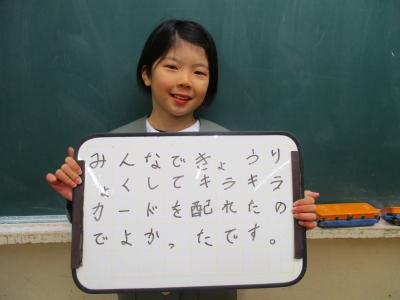 みんなできょうり
ょくしてキラキラ
カードを配れたの
でよかったです。